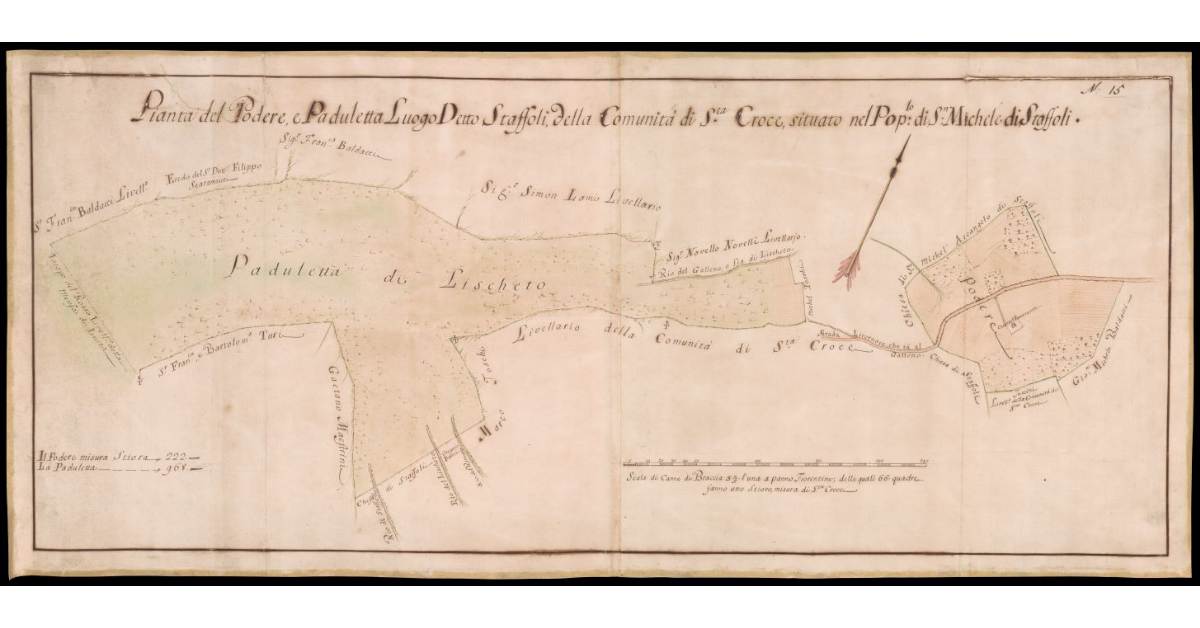 N 15
Pianta del Podere, e Paduletta Luogo Detto Staffoli, della Comunità di S.ta Croce, situato nel Pop.lo di S.n Michele di Staffoli.
Sig.r Fran.co Baldacci
Eredo del S.r Dot.r Filippo
S.r Fran.co Baldacci Livell.o
Sig.r Simon Lamo Livellario
Sig.r Novello Novelli Livellario
Rio del Galleno, o sia di Lischeto
Chiesa di S. Michel Arcangelo di Staffoli
Paduletta di Lischeto
Podre
S.r Fran.co, e Bartolom.o Turi
Livellario della Comunità di S.ta Croce
Strada Livornese che va al
Galleno
Chiesa di Staffoli
Gio. Michele Baldacci
Livell.o della Comunità di
S.ta Croce
Gaetano Maestrini
Marco Toschi
Chiesa di Staffoli
Il Podero misura Stiora 222
La Paduletta 968
Scala di Canne di Braccia l'una a panno Fiorentine; delle quali 66 quadre
fanno uno Stioro, misura di S.ta Croce